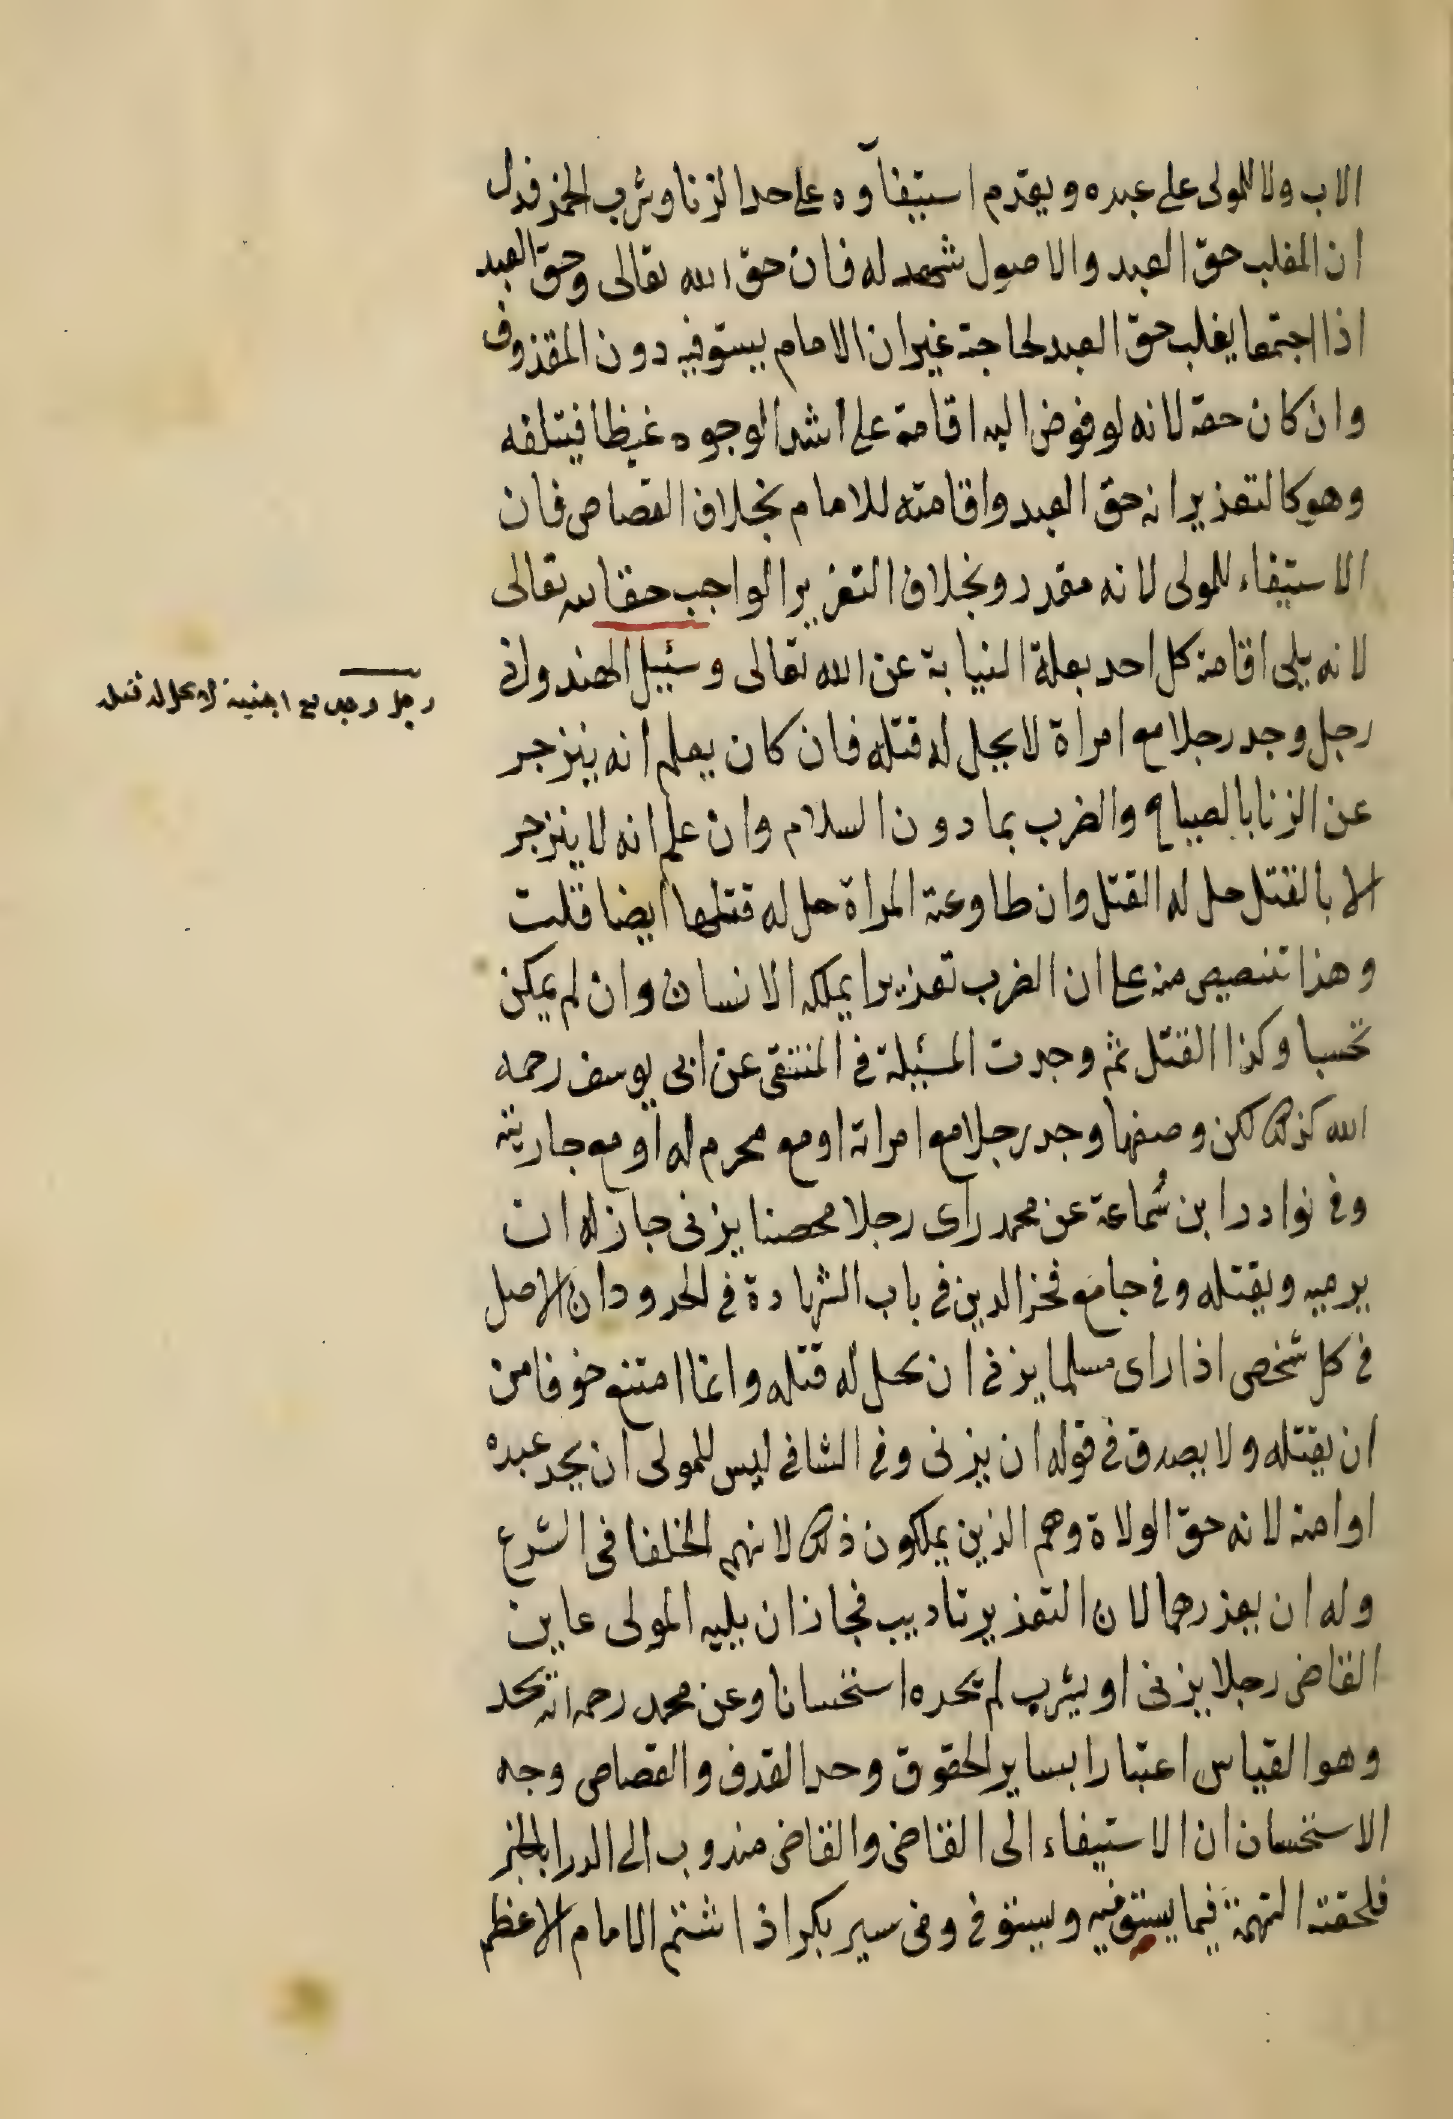 الاب ولا للمولى على عبده ويقدم استيفآوه على حد الزنا وشرب الخمر فدل
ان المغلب حق العبد والاصول تشهد له فان حق الله تعالى وحق العبد
اذا اجتمعا يغلب حق العبد لحاجته غير ان الامام يستوفيه دون المقذوف
وان كان حقه لانه لو فوض اليه اقامة على اشد الوجوه غيظا فيتلفه
وهو كالتعذير انه حق العبد واقامته للامام بخلاف القصاص فان
الاستيفاء للمولى لانه مقدر وبخلاف التعزير الواجب حقا لله تعالى
لانه يلى اقامة كل احد بعلة النيابة عن الله تعالى وسئيل الهندوانى
رجل وجد رجلا مع امراة لا يحل له قتله فان كان يعلم انه ينزجر
عن الزنا بالصياح والضرب بما دون السلام وان علم انه لا ينزجر
الا بالقتل حل له القتل وان طاوعته المراة حل له قتلها ايضا قلت
وهذا تنصيص منه على ان الضرب تعذيرا يملكه الانسان وان لم يكن
محتسبا وكذا القتل ثم وجدت المسئيلة فى المنتقى عن ابى يوسف رحمه
الله كذلك لكن وصفها وجد رجلا مع امراته او مع محرم له او مع جاريته
وفى نوادر ابن سُماعة عن محمد راى رجلا محصنا يزنى جاز له ان
يرميه ويقتله وفى جامع فخر الدين فى باب الشهادة فى الحدود ان الاصل
فى كل شخص اذا راى مسلما يزنى ان يحل له قتله وانما امتنع خوفا من
ان يقتله ولا يصدق فى قوله ان يزنى وفى الشافى ليس للمولى ان يحد عبده
او امته لانه حق الولاة وهم الذين يملكون ذلك لانهم الخلفا فى الشرع
وله ان يعذرهما لان التعذير تاديب فجاز ان يليه المولى عاين
القاضى رجلا يزنى او يشرب لم يحده استحسانا وعن محمد رحمه انه يحد
وهو القياس اعتبارا بساير الحقوق وحد القذف والقصاص وجه
الاستحسان ان الاستيفاء الى القاضى والقاضى مندوب الى الدرا بالخبر
فلحقته التهمة فيما يستوفيه ويستوفى وفى سير بكر اذا شتم الامام الاعظم
رجل وجد مع اجنبية لم يحل له قتله